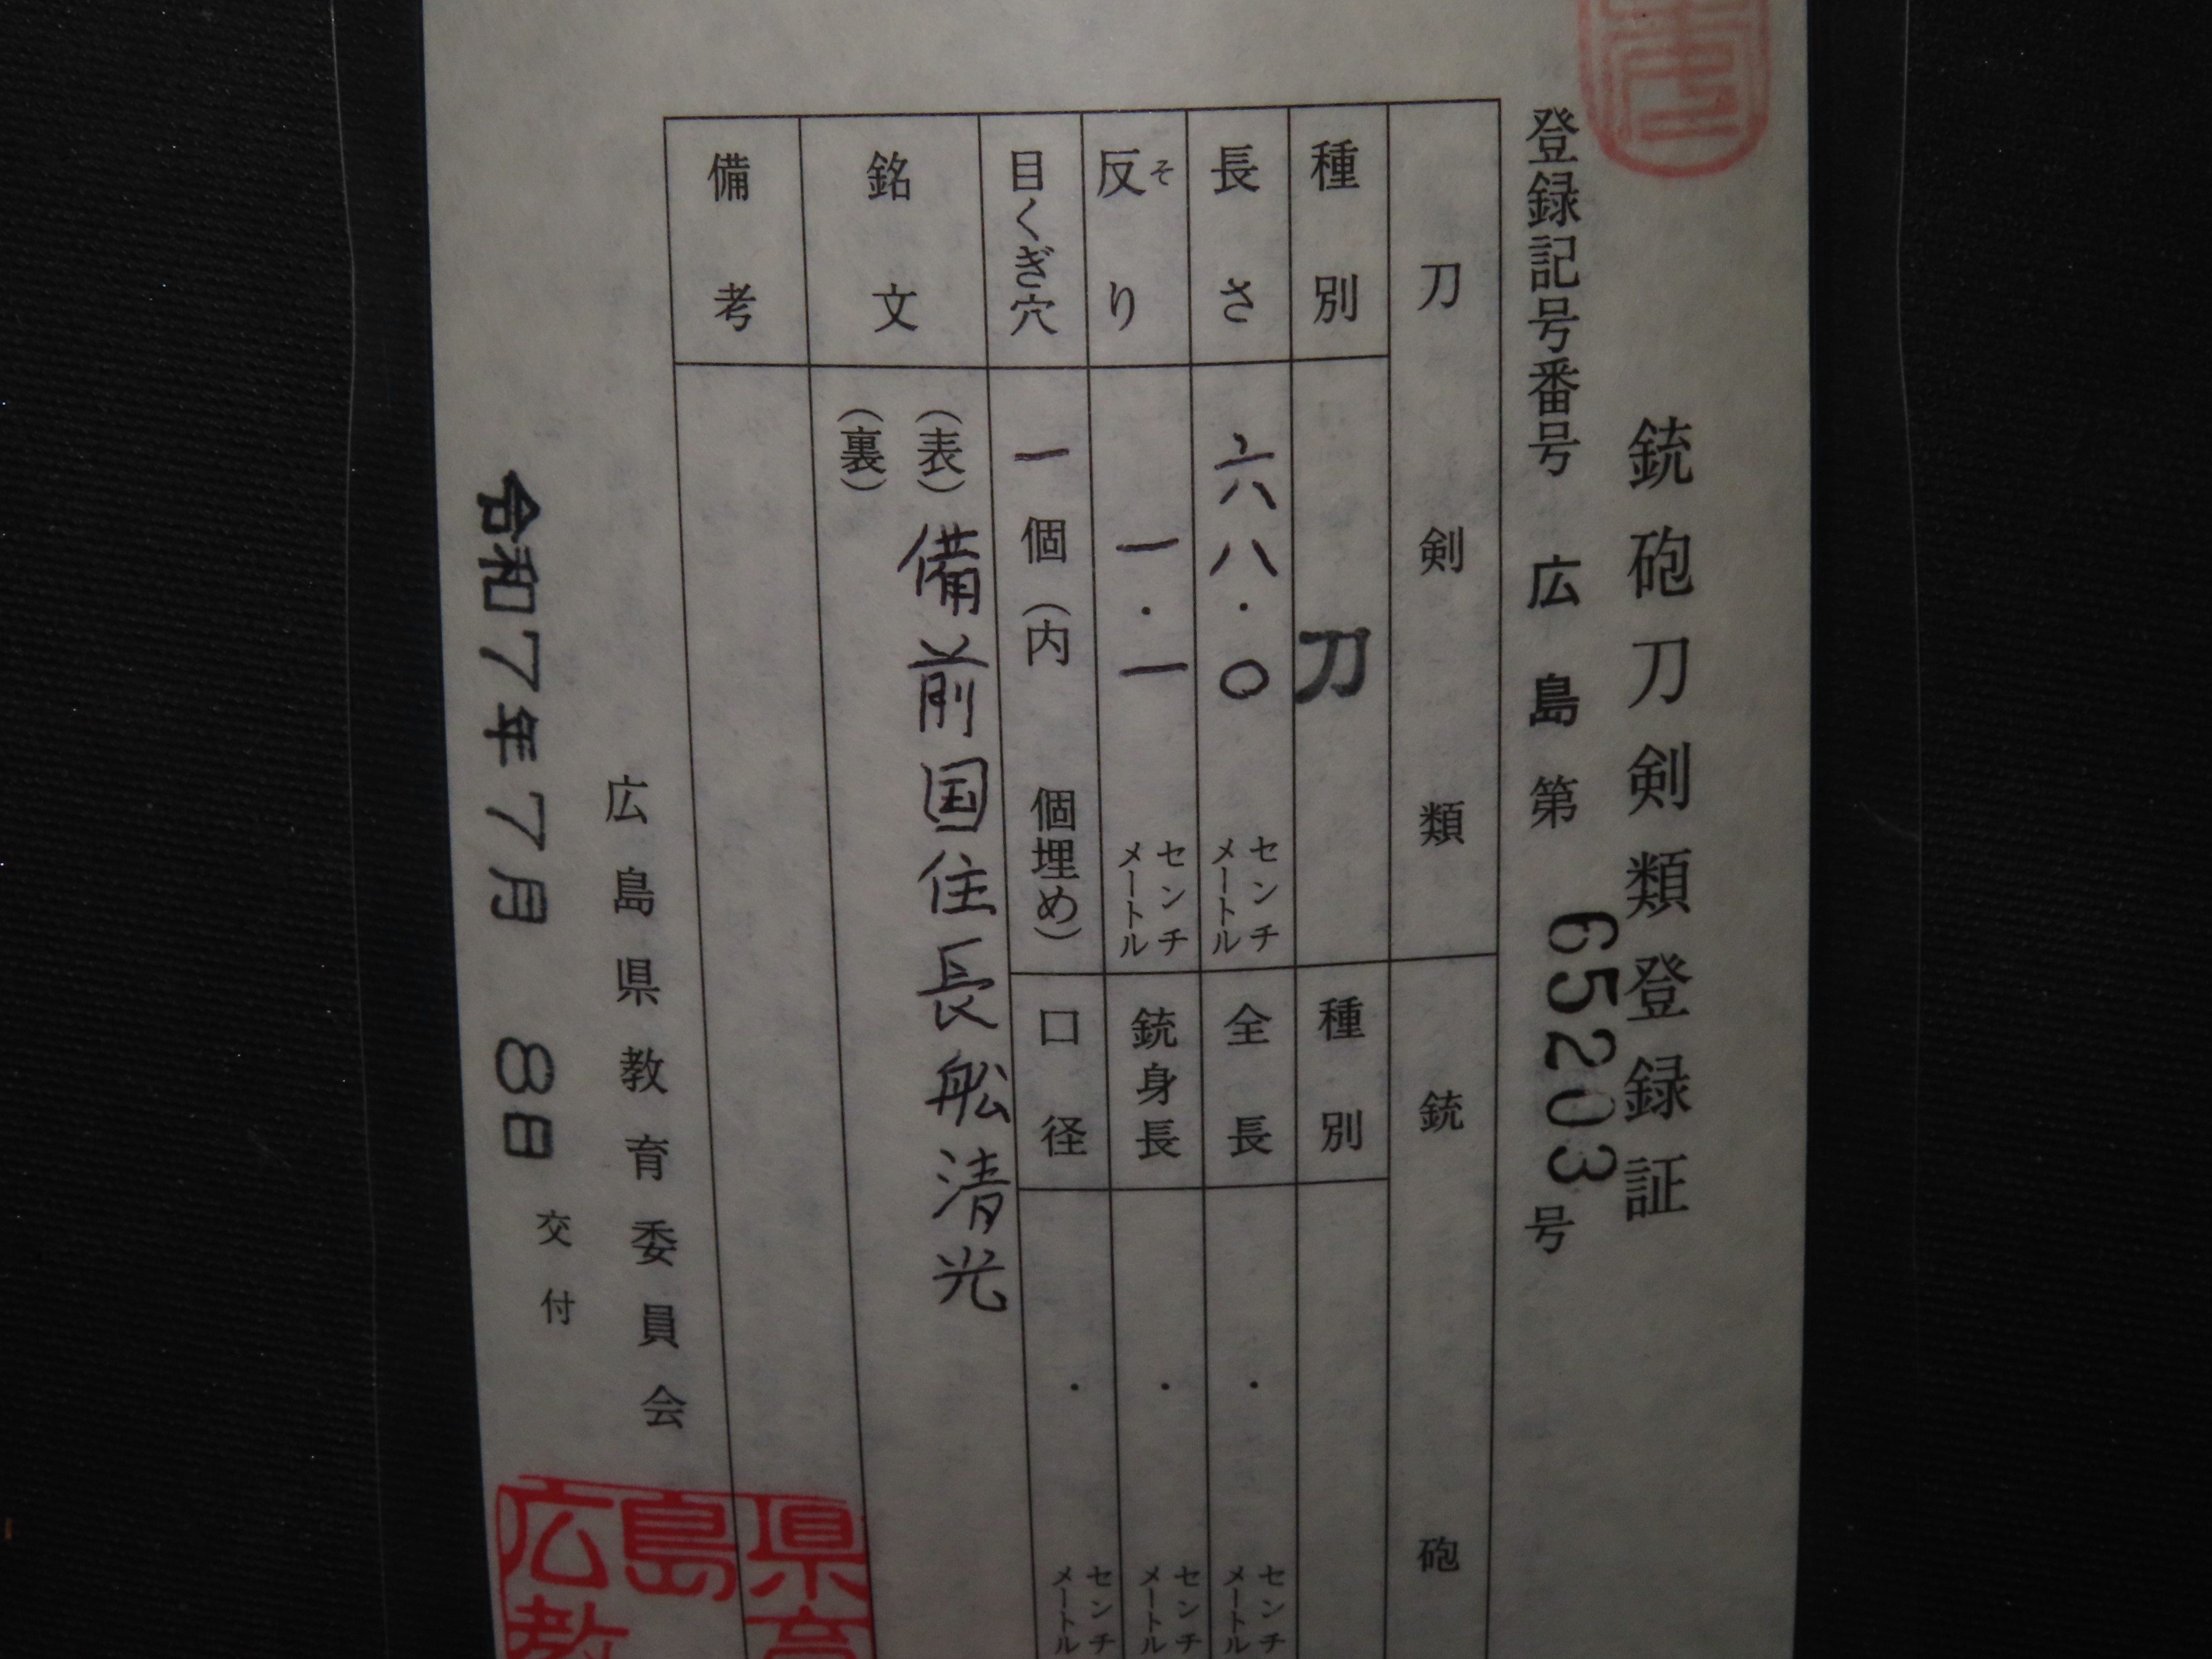 銃砲刀剣類登録証
登録記号番号 広島第 65203号
刀剣類
銃砲
種別 刀
長さ 六八.〇 センチメートル
反り 一.一 センチメートル
そ
目くぎ穴 一個(内 個埋め)
種別
全長 . センチメートル
銃身長 . センチメートル
口径 . センチメートル
銘文 (表)備前国住長舩清光
(裏)
備考
広島県教育委員会
令和7年7月 8日 交付
県育
島
広教